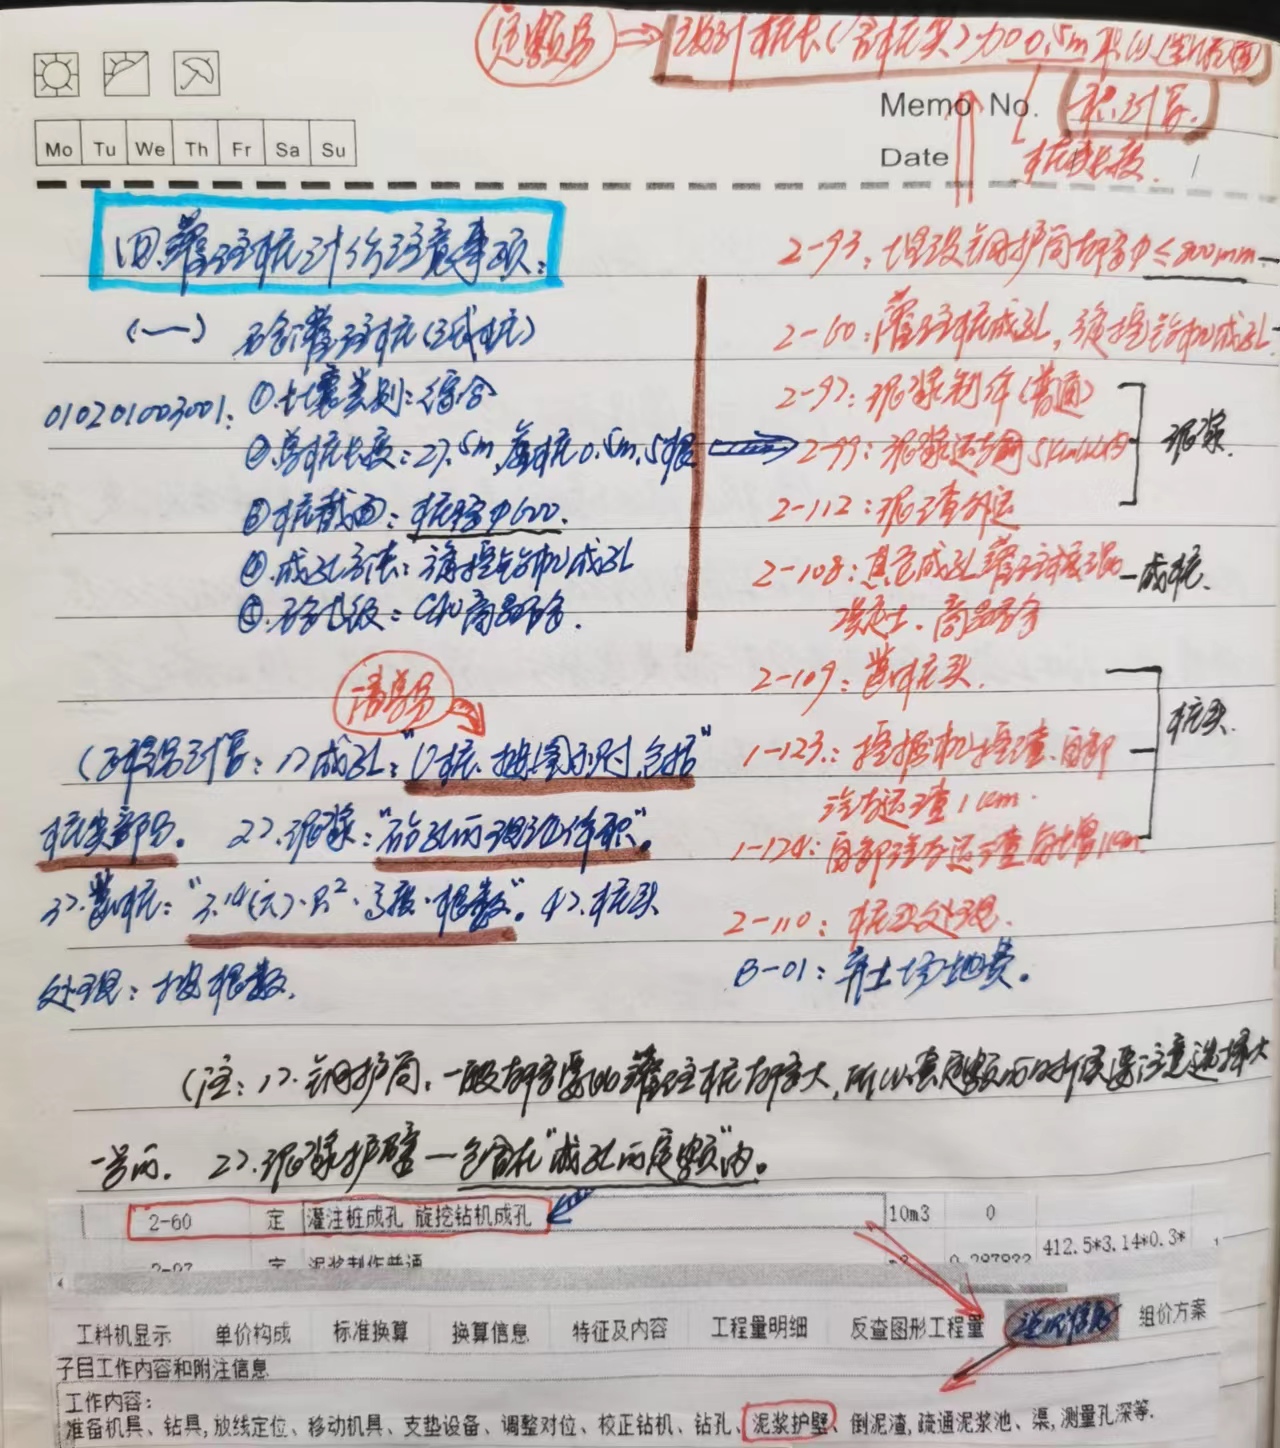 定额量 ⇒ 设计桩长(含桩尖)加0.5m乘以
积计算.
Memo No.
Mo Tu We Th Fr Sa Su
Date
桩长度.
四.灌注桩计价注意事项:
2-93:埋设钢护筒 桩径φ≤800mm
(一) 砼灌注桩(试桩)
2-60:灌注桩成孔,旋挖钻机成孔
010201003001: ①.土壤类别:综合
2-97:泥浆制作(普通)
②.单桩长度:27.5m,凿桩0.5m,5根
2-99:泥浆运输5km以内
泥浆.
③桩截面:桩径φ600.
2-112:泥渣外运
④.成孔方法:旋挖钻机成孔
2-108:其它成孔灌注
成桩.
⑤.砼等级:C40商品砼
混凝土.商品砼
2-109:凿桩头.
清单量
桩头.
(工程量计算:1>成孔:"1>桩.按图示尺寸,包括"
1-123:挖掘机挖渣.自卸
汽车运渣1km.
桩尖部分. 2>.泥浆:"钻孔的理论体积".
1-124:自卸汽车运渣每增1km
3>.凿桩:"3.14(π)·R²·高度·根数". 4>.桩头
2-110:桩头处理.
处理:按根数.
B-01:弃土场地费.
(注:1>.钢护筒,一般桩径要比灌注桩桩径大,所以套定额的时候要注意选择大
一号的. 2>.泥浆护壁—包含在"成孔的定额"内.
2-60 定 灌注桩成孔 旋挖钻机成孔 10m3 0
412.5*3.14*0.3*
2-97 定 泥浆制作普通
工料机显示 单价构成 标准换算 换算信息 特征及内容 工程量明细 反查图形工程量 说明信息 组价方案
子目工作内容和附注信息
工作内容:
准备机具、钻具,放线定位、移动机具、支垫设备、调整对位、校正钻机、钻孔、泥浆护壁、倒泥渣,疏通泥浆池、渠,测量孔深等.